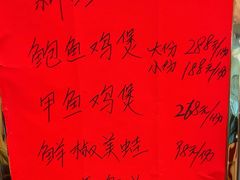 鲍鱼鸡煲 大份 288元/份
小份 188元/份
甲鱼鸡煲 268元/份
鲜椒美蛙 38元/份